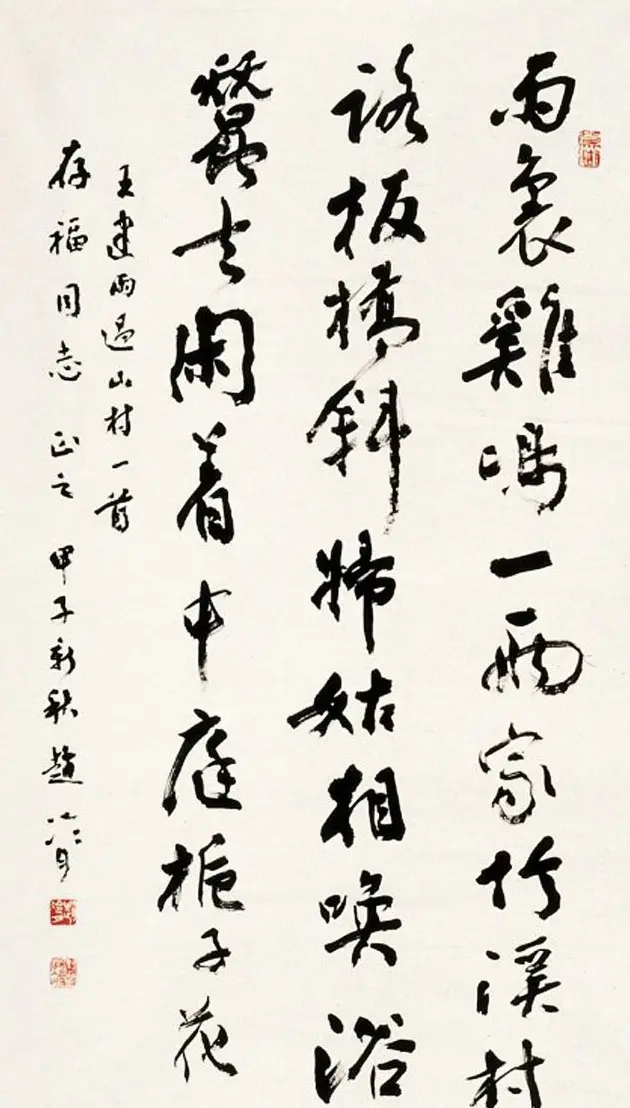 雨裏雞鳴一兩家竹溪村
路板橋斜婦姑相喚浴
蠶去閑着中庭梔子花
王建雨過山村一首
存福同志 正之 甲子新秋 趙冷月